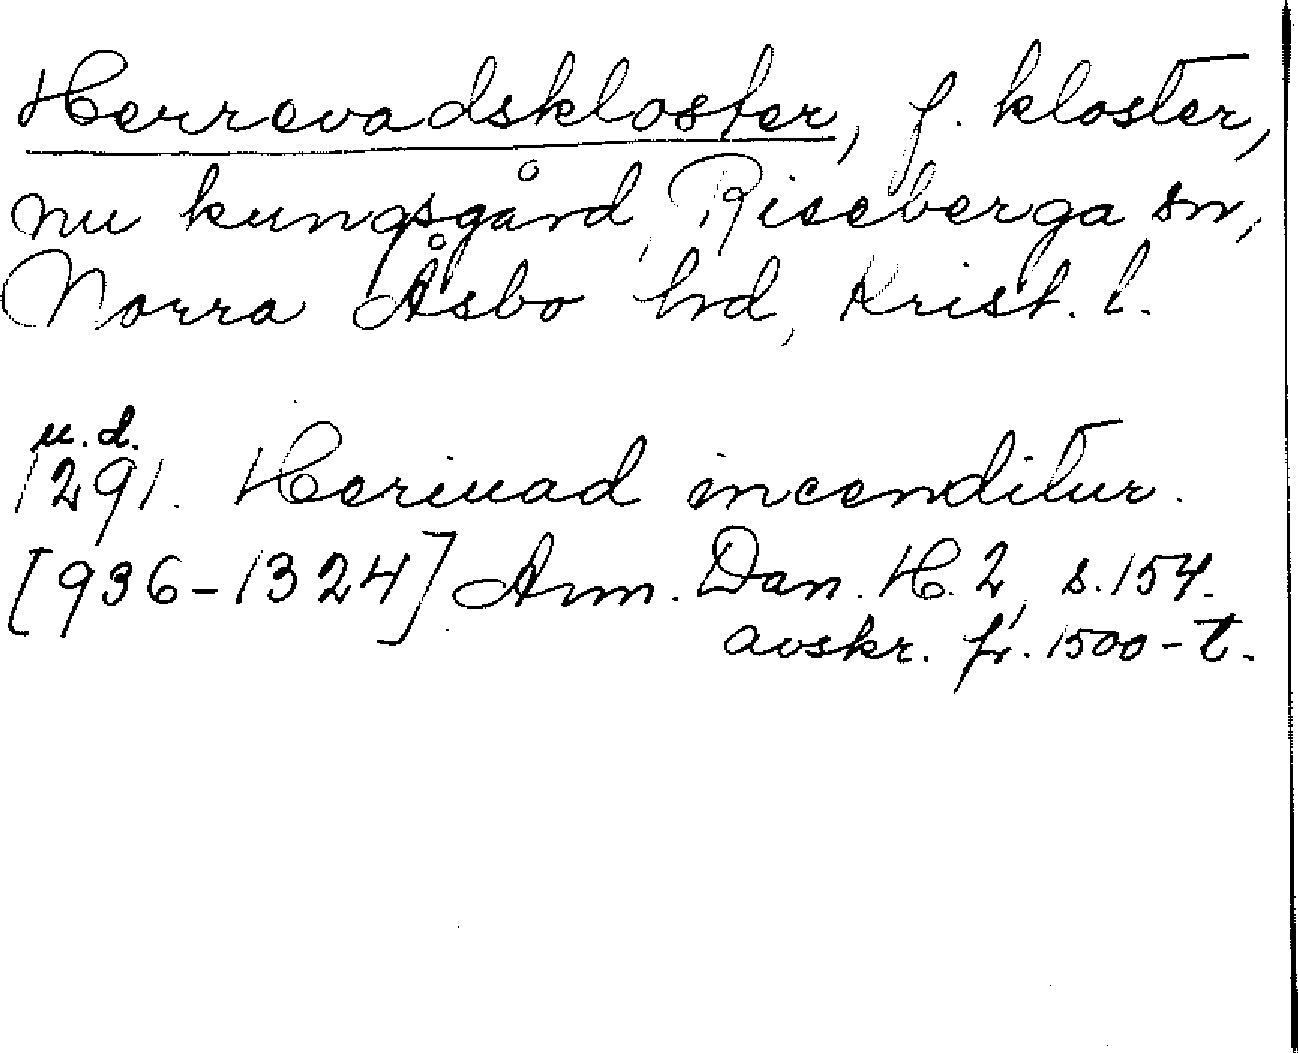 Herrevadskloster, f. kloster,
nu kungsgård, Riseberga sn,
Norra Åsbo hd, Krist. l.
u.d.
1291. Heriuad incenditur.
[936-1324] Ann. Dan. H. 2, s. 154.
avskr. fr. 1500-t.